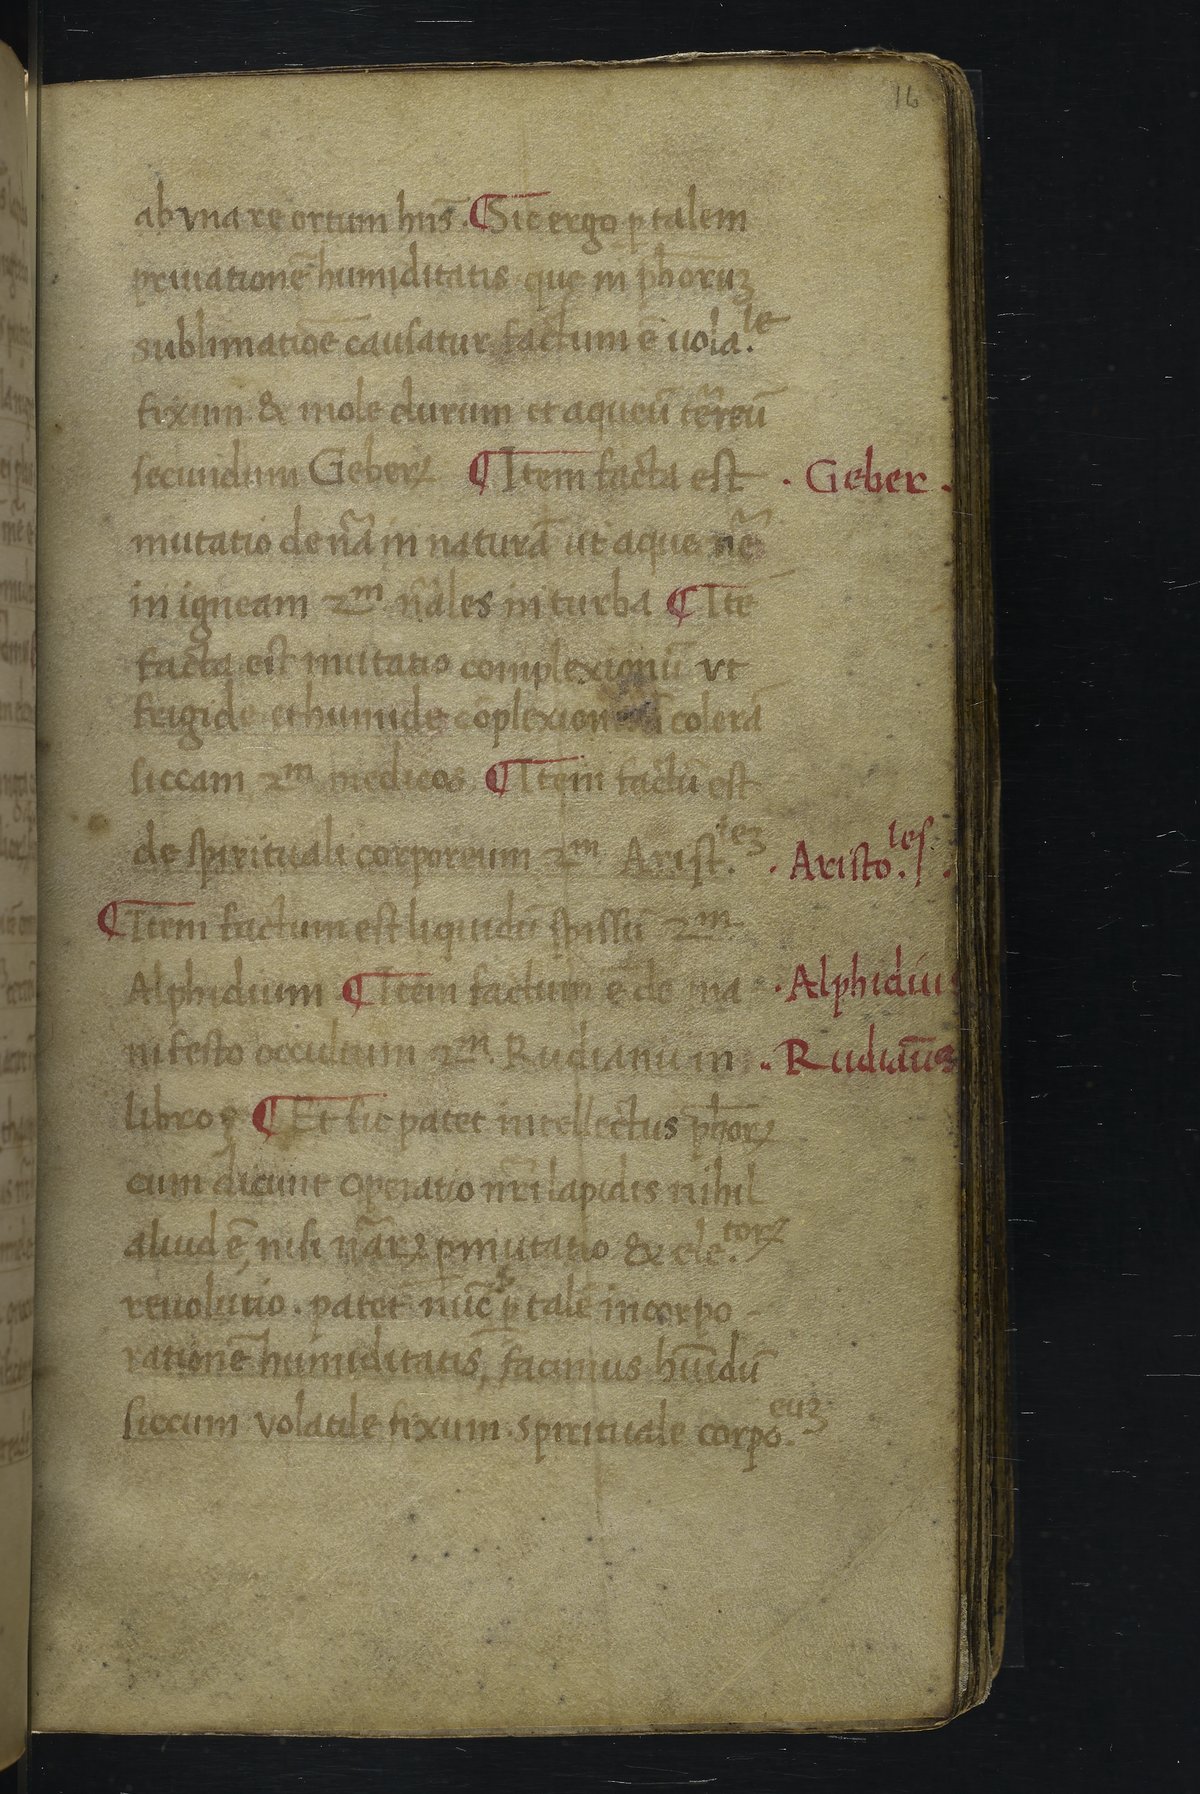 16
ab vna re ortum hn̄s. ¶ Sic ergo ꝑ talem
priuationē humiditatis que in ph̄oruꝫ
sublimatiōe causatur factum ē uola.le
fixum & mole durum et aqueū ter̄eū
secundum Geberꝝ ¶ Item facta est · Geber ·
mutatio de nā̄ in naturā ut aque nē̄
in igneam 2m nāles in turba ¶ Itē
facta est mutatio complexionū vt
frigide et humide cōplexionē in colerā
siccam 2m medicos ¶ Item factū est
de spirituali corporeum 2m Arist.teꝫ · Aristo.les ·
¶ Item factum est liquidū spissū 2m
Alphidium ¶ Item factum ē de ma · Alphidius
nifesto occultum 2m Rudianum in · Rudiaū̄s
libro ¶ Et sic patet intellectus ph̄orꝝ
cum dicunt Operatio nr̄i lapidis nihil
aliud ē, nisi nāꝝ ꝑmutatio & ele.torꝝ
reuolutio. patet nūc ꝙ ꝑ talē incorpo-
rationē humiditatis, facimus hūidū
siccum volatile fixum spirituale corpo.euꝫ